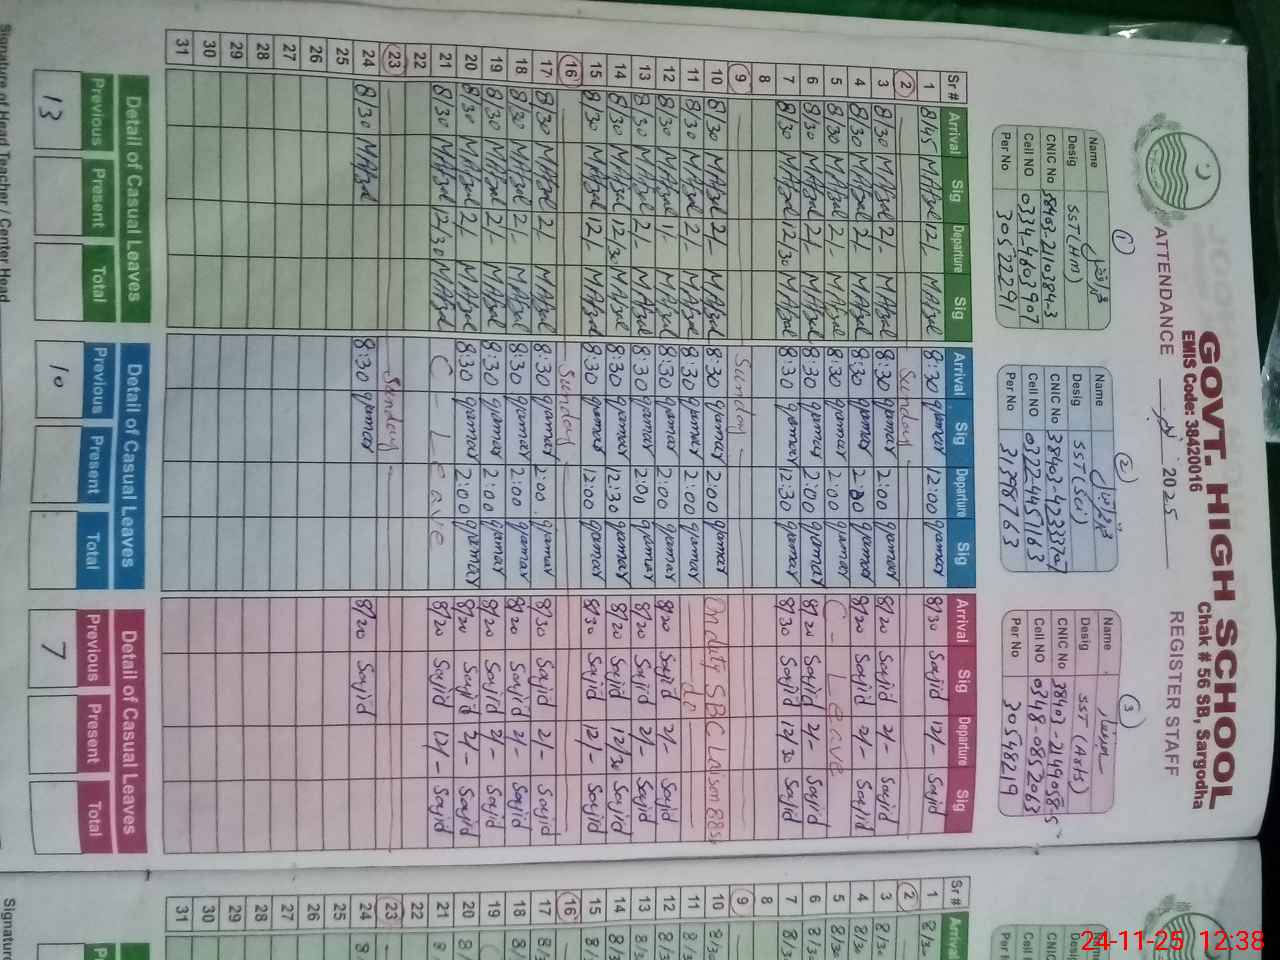 GOVT. HIGH SCHOOL
EMIS Code: 38420016
Chak # 56 SB, Sargodha
ATTENDANCE 2025 REGISTER STAFF
1
Name
Desig SST (HM)
CNIC No 38403-2110384-3
Cell NO 0334-4603907
Per No 30522291
2
Name
Desig SST (Sci)
CNIC No
Cell NO 0322-4451163
Per No 31398763
3
Name
Desig SST (Arts)
CNIC No 38403-2149058-5
Cell NO 0348-0852063
Per No 30548219
Sr# Arrival Sig Departure Sig Arrival Sig Departure Sig Arrival Sig Departure Sig
1 8/45 MAfzal 12/- MAfzal 8:30 qamar 12:00 qamar 8/30 Sajid 12/- Sajid
2 Sunday
3 8/30 MAfzal 2/- MAfzal 8:30 qamar 2:00 qamar 8/20 Sajid 2/- Sajid
4 8/30 MAfzal 2/- MAfzal 8:30 qamar 2:00 qamar 8/20 Sajid 2/- Sajid
5 8/30 MAfzal 2/- MAfzal 8:30 qamar 2:00 qamar C-Leave
6 8/30 MAfzal 2/- MAfzal 8:30 qamar 2:00 qamar 8/20 Sajid 2/- Sajid
7 8/30 MAfzal 12/30 MAfzal 8:30 qamar 12:30 qamar 8/30 Sajid 12/30 Sajid
8
9 Sunday
10 8/30 MAfzal 2/- MAfzal 8:30 qamar 2:00 qamar On duty SBC Laison
11 8/30 MAfzal 2/- MAfzal 8:30 qamar 2:00 qamar do
12 8/30 MAfzal 1/- MAfzal 8:30 qamar 2:00 qamar 8/20 Sajid 2/- Sajid
13 8/30 MAfzal 2/- MAfzal 8:30 qamar 2:00 qamar 8/20 Sajid 2/- Sajid
14 8/30 MAfzal 12/30 MAfzal 8:30 qamar 12:30 qamar 8/20 Sajid 12/30 Sajid
15 8/30 MAfzal 12/- MAfzal 8:30 qamar 12:00 qamar 8/30 Sajid 12/- Sajid
16 Sunday
17 8/30 MAfzal 2/- MAfzal 8:30 qamar 2:00 qamar 8/30 Sajid 2/- Sajid
18 8/30 MAfzal 2/- MAfzal 8:30 qamar 2:00 qamar 8/20 Sajid 2/- Sajid
19 8/30 MAfzal 2/- MAfzal 8:30 qamar 2:00 qamar 8/20 Sajid 2/- Sajid
20 8/30 MAfzal 2/- MAfzal 8:30 qamar 2:00 qamar 8/20 Sajid 2/- Sajid
21 8/30 MAfzal 12/30 MAfzal C-Leave 8/20 Sajid 12/- Sajid
22
23 Sunday
24 8/30 MAfzal 8:30 qamar 8/20 Sajid
25
26
27
28
29
30
31
Detail of Casual Leaves Detail of Casual Leaves Detail of Casual Leaves
Previous Present Total Previous Present Total Previous Present Total
13 10 7
Signature of Head Teacher / Center Head
Sr# Arrival
1 8/30
2
3 8/30
4 8/30
5 8/30
6 8/30
7 8/30
8
9
10 8/30
11
12
13
14
15
16
17
18
19
20
21
22
23
24
25
26
27
28
29
30
31
Name
Desig
CNIC
Cell N
Per N
Signature
24-11-25 12:38